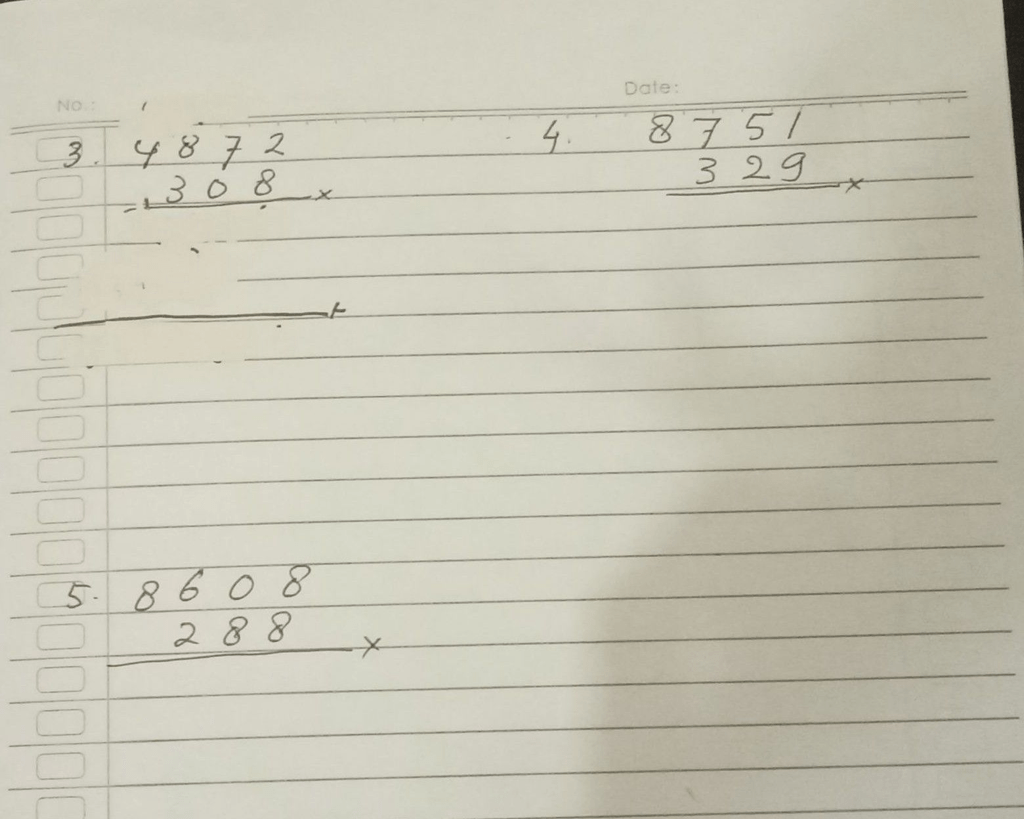 No.:
Date:
3. 4872
308 ×
+
4. 8751
329 ×
5. 8608
288 ×